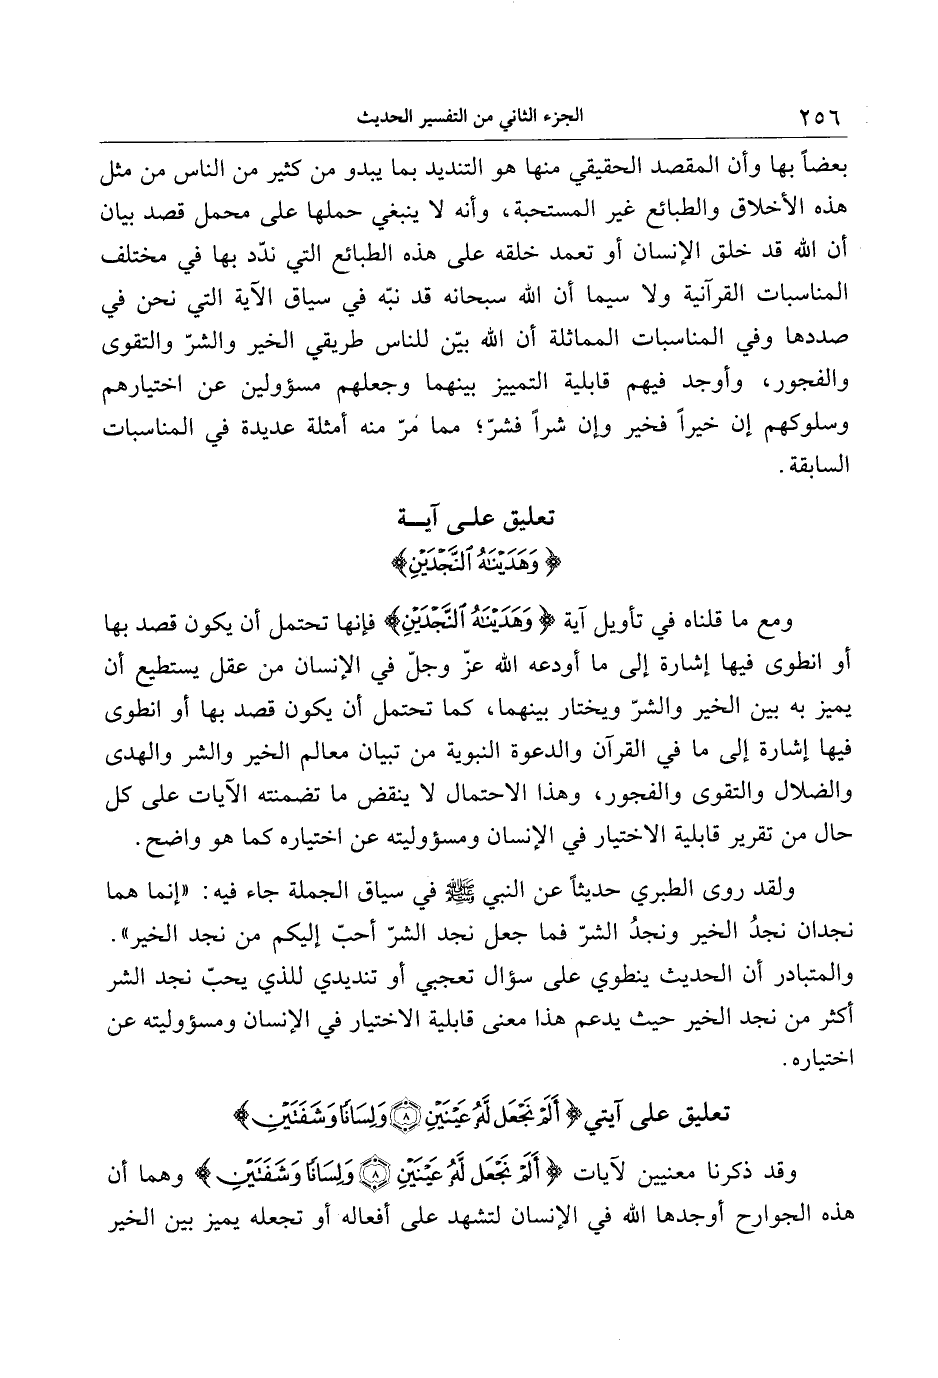 ٢٥٦ الجزء الثاني من التفسير الحديث
بعضاً بها وأن المقصد الحقيقي منها هو التنديد بما يبدو من كثير من الناس من مثل
هذه الأخلاق والطبائع غير المستحبة، وأنه لا ينبغي حملها على محمل قصد بيان
أن الله قد خلق الإنسان أو تعمد خلقه على هذه الطبائع التي ندّد بها في مختلف
المناسبات القرآنية ولا سيما أن الله سبحانه قد نبّه في سياق الآية التي نحن في
صددها وفي المناسبات المماثلة أن الله بيّن للناس طريقي الخير والشرّ والتقوى
والفجور، وأوجد فيهم قابلية التمييز بينهما وجعلهم مسؤولين عن اختيارهم
وسلوكهم إن خيراً فخير وإن شراً فشرّ؛ مما مَرّ منه أمثلة عديدة في المناسبات
السابقة.
تعليق على آيــة
﴿وَهَدَيْنَٰهُ ٱلنَّجْدَيْنِ﴾
ومع ما قلناه في تأويل آية ﴿وَهَدَيْنَٰهُ ٱلنَّجْدَيْنِ﴾ فإنها تحتمل أن يكون قصد بها
أو انطوى فيها إشارة إلى ما أودعه الله عزّ وجلّ في الإنسان من عقل يستطيع أن
يميز به بين الخير والشرّ ويختار بينهما، كما تحتمل أن يكون قصد بها أو انطوى
فيها إشارة إلى ما في القرآن والدعوة النبوية من تبيان معالم الخير والشر والهدى
والضلال والتقوى والفجور، وهذا الاحتمال لا ينقض ما تضمنته الآيات على كل
حال من تقرير قابلية الاختيار في الإنسان ومسؤوليته عن اختياره كما هو واضح.
ولقد روى الطبري حديثاً عن النبي ﷺ في سياق الجملة جاء فيه: «إنما هما
نجدان نجدُ الخير ونجدُ الشرّ فما جعل نجد الشرّ أحبّ إليكم من نجد الخير».
والمتبادر أن الحديث ينطوي على سؤال تعجبي أو تنديدي للذي يحبّ نجد الشر
أكثر من نجد الخير حيث يدعم هذا معنى قابلية الاختيار في الإنسان ومسؤوليته عن
اختياره.
تعليق على آيتي ﴿أَلَمْ نَجْعَل لَّهُۥ عَيْنَيْنِ ۝٨ وَلِسَانًا وَشَفَتَيْنِ﴾
وقد ذكرنا معنيين لآيات ﴿أَلَمْ نَجْعَل لَّهُۥ عَيْنَيْنِ ۝٨ وَلِسَانًا وَشَفَتَيْنِ﴾ وهما أن
هذه الجوارح أوجدها الله في الإنسان لتشهد على أفعاله أو تجعله يميز بين الخير